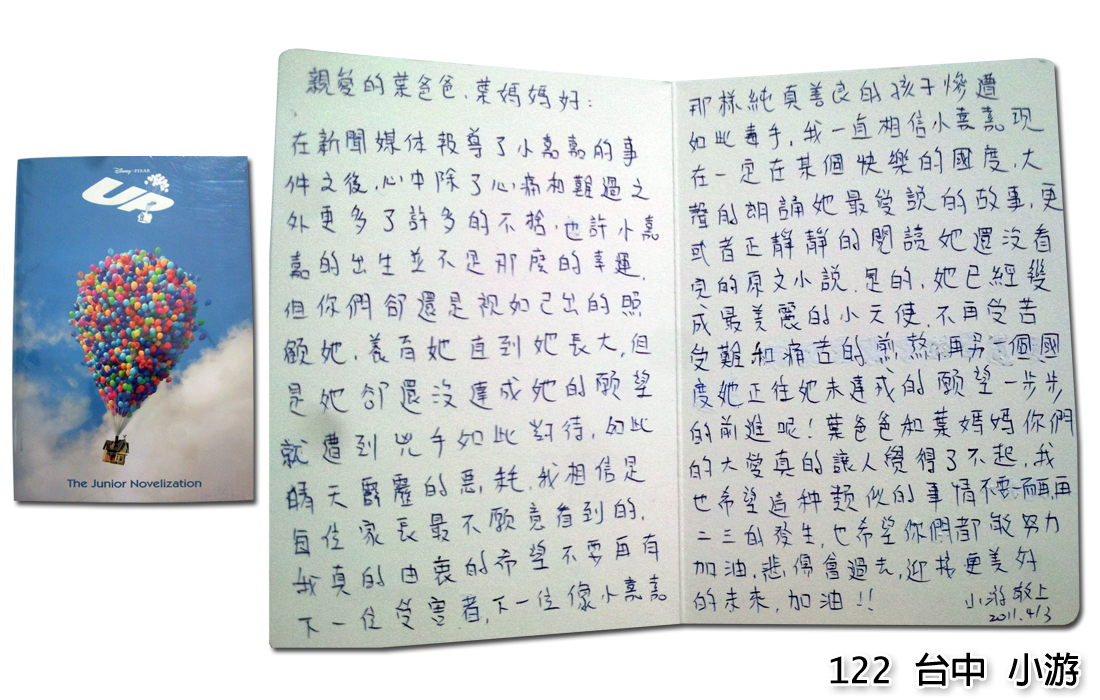 Disney·PIXAR
UP
The Junior Novelization
親愛的葉爸爸、葉媽媽好:
在新聞媒体報導了小嘉嘉的事
件之後,心中除了心痛和難過之
外更多了許多的不捨,也許小嘉
嘉的出生並不是那麼的幸運,
但你們卻還是視如己出的照
顧她,養育她直到她長大,但
是她卻還沒達成她的願望
就遭到兇手如此對待,如此
晴天霹靂的惡耗,我相信是
每位家長最不願意看到的,
我真的由衷的希望不要再有
下一位受害者,下一位像小嘉嘉
那樣純真善良的孩子慘遭
如此毒手,我一直相信小嘉嘉現
在一定在某個快樂的國度,大
聲的朗誦她最愛說的故事,更
或者正靜靜的閱讀她還沒看
完的原文小說,是的,她已經變
成最美麗的小天使,不再受苦
受難和痛苦的煎熬,再另一個國
度她正往她未達成的願望一步步
的前進呢!葉爸爸和葉媽媽你們
的大愛真的讓人覺得了不起,我
也希望這种類似的事情不要一而再,再
二三的發生,也希望你們都能努力
加油,悲傷會過去,迎接更美好
的未來,加油!!
小游敬上
2011.4/3
122 台中 小游